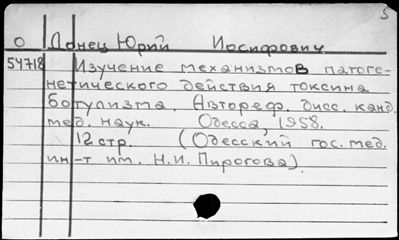 5
О Донец Юрий Иосифович
54718 Изучение механизмов патоге-
нетического действия токсина
ботулизма. Автореф. дисс. канд.
мед. наук. Одесса, 1958.
12 стр. (Одесский гос. мед.
ин-т им. Н.И. Пирогова).